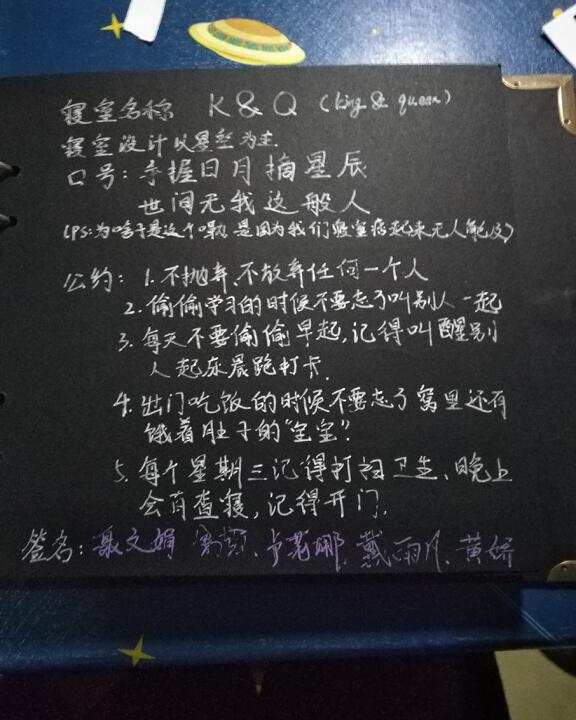 寝室名称 K & Q (king & queen)
寝室设计以星空为主
口号:手握日月摘星辰
世间无我这般人
(PS:为啥子是这个嘞,是因为我们寝室疯起来无人能及)
公约:1.不抛弃、不放弃任何一个人
2.偷偷学习的时候不要忘了叫别人一起
3.每天不要偷偷早起,记得叫醒别
人起床晨跑打卡.
4.出门吃饭的时候不要忘了窝里还有
饿着肚子的"宝宝".
5.每个星期三记得打扫卫生、晚上
会有查寝,记得开门.
签名:文娟 戴雨 黄娇